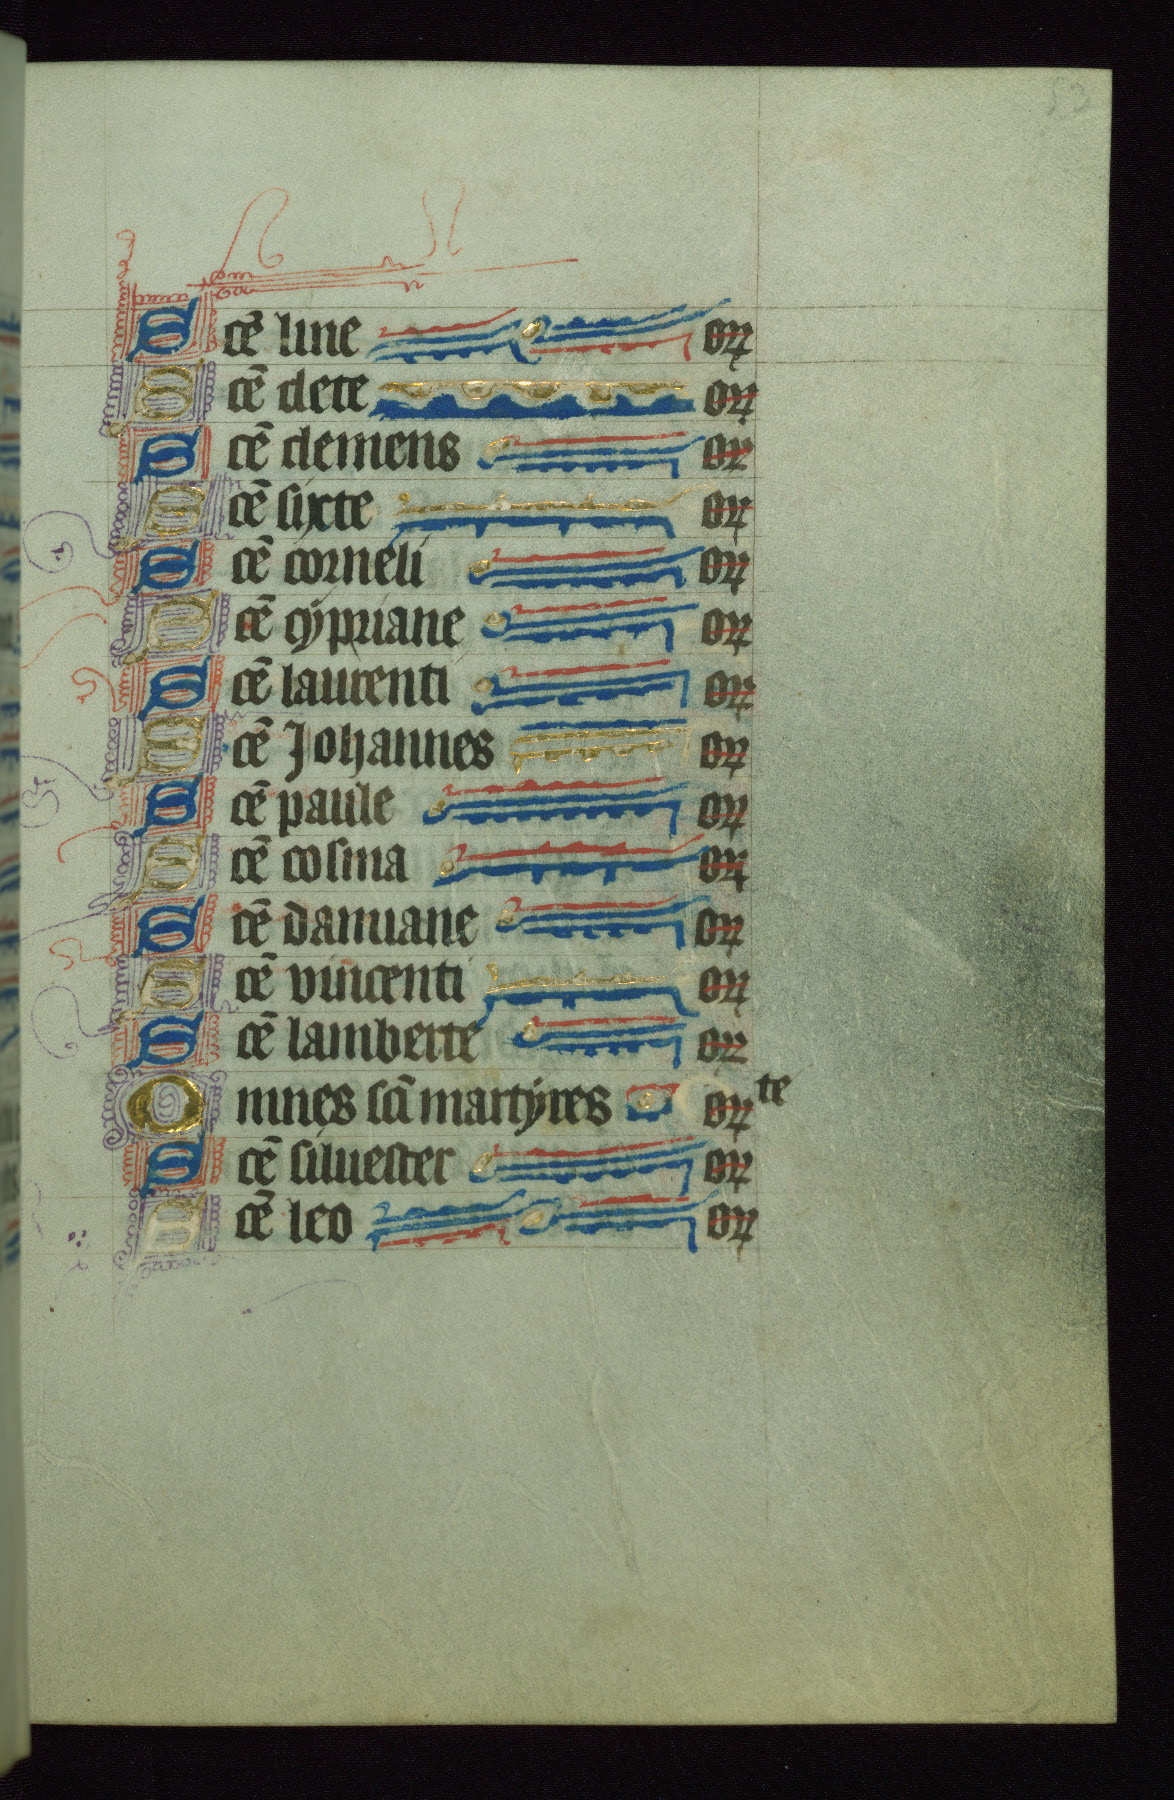 53
Scē line or
Scē clete or
Scē clemens or
Scē sixte or
Scē corneli or
Scē cypriane or
Scē laurenti or
Scē Johannes or
Scē paule or
Scē cosma or
Scē damiane or
Scē vincenti or
Scē lamberte or
Omnes scī martyres orte
Scē siluester or
Scē leo or